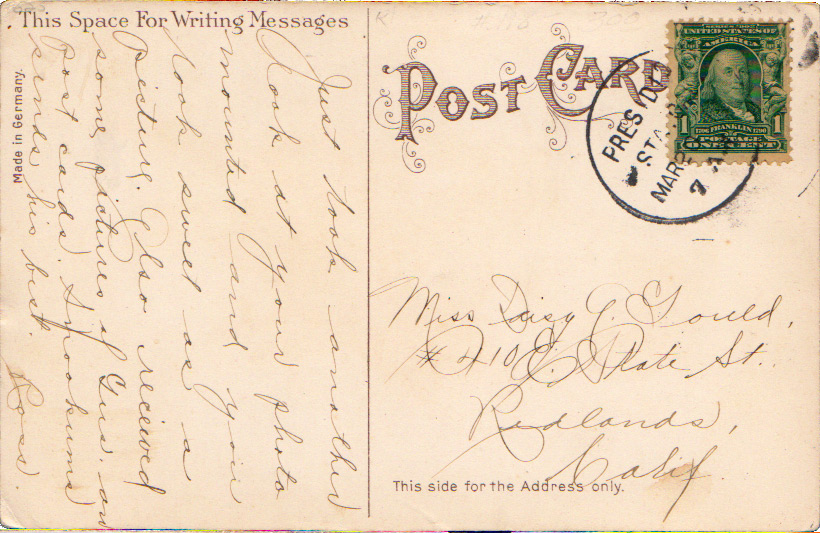 This Space For Writing Messages
Made in Germany.
Just took another
look at your photo
mounted and you
look sweet as a
picture. Also received
some pictures of Gus. and
Post cards. Snookums
sends his best.
Ross.
POST CARD
PRESIDIO
STA
MAR
7 A
SERIES 1902
UNITED STATES OF
AMERICA
1706 FRANKLIN 1790
1
POSTAGE
ONE CENT
Miss Daisy A. Gould,
#410 E. State St.
Redlands,
Calif.
This side for the Address only.